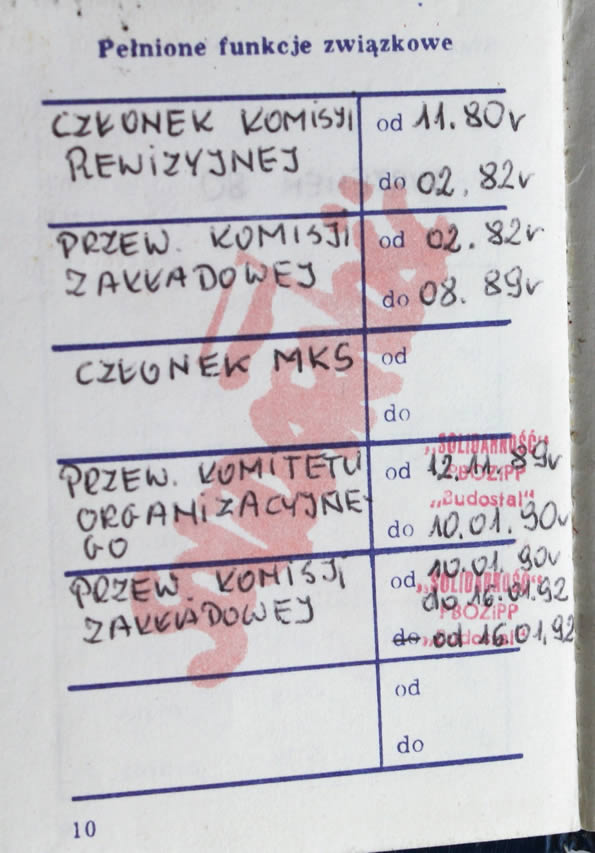 Pełnione funkcje związkowe
CZŁONEK KOMISJI od 11.80r
REWIZYJNEJ
do 02.82r
PRZEW. KOMISJI od 02.82r
ZAKŁADOWEJ
do 08.89r
CZŁONEK MKS od
do
PRZEW. KOMITETU od 12.11.89r
„SOLIDARNOŚĆ“
PBOZiPP
„Budostal“
ORGANIZACYJNE-
GO do 10.01.90r
PRZEW. KOMISJI od 10.01.90r
„SOLIDARNOŚĆ“
do 16.01.92
PBOZiPP
ZAKŁADOWEJ
do od 16.01.92
„Budostal“
od
do
Solidarność
10